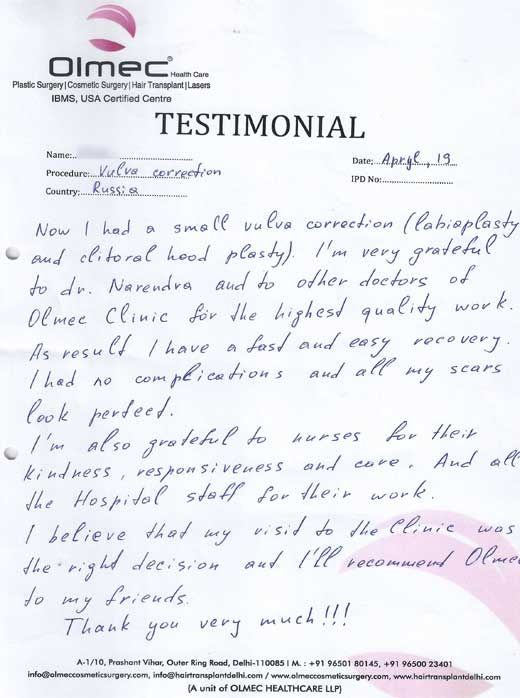 Olmec® Health Care
Plastic Surgery | Cosmetic Surgery | Hair Transplant | Lasers
IBMS, USA Certified Centre
TESTIMONIAL
Name:
Date: Apryl, 19
Procedure: Vulva correction
IPD No:
Country: Russia
Now I had a small vulva correction (labiaplasty
and clitoral hood plasty). I'm very grateful
to dr. Narendra and to other doctors of
Olmec Clinic for the highest quality work.
As result I have a fast and easy recovery.
I had no complications and all my scars
look perfect.
I'm also grateful to nurses for their
kindness, responsiveness and care. And all
the Hospital staff for their work.
I believe that my visit to the Clinic was
the right decision and I'll recommend Olmec
to my friends.
Thank you very much!!!
A-1/10, Prashant Vihar, Outer Ring Road, Delhi-110085 | M. : +91 96501 80145, +91 96500 23401
info@olmeccosmeticsurgery.com, info@hairtransplantdelhi.com / www.olmeccosmeticsurgery.com, www.hairtransplantdelhi.com
(A unit of OLMEC HEALTHCARE LLP)